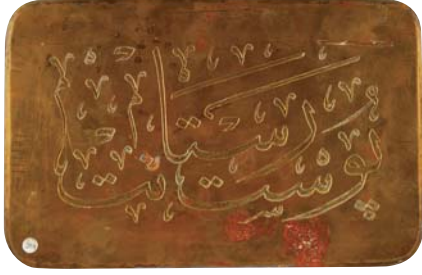 پوست رستانت